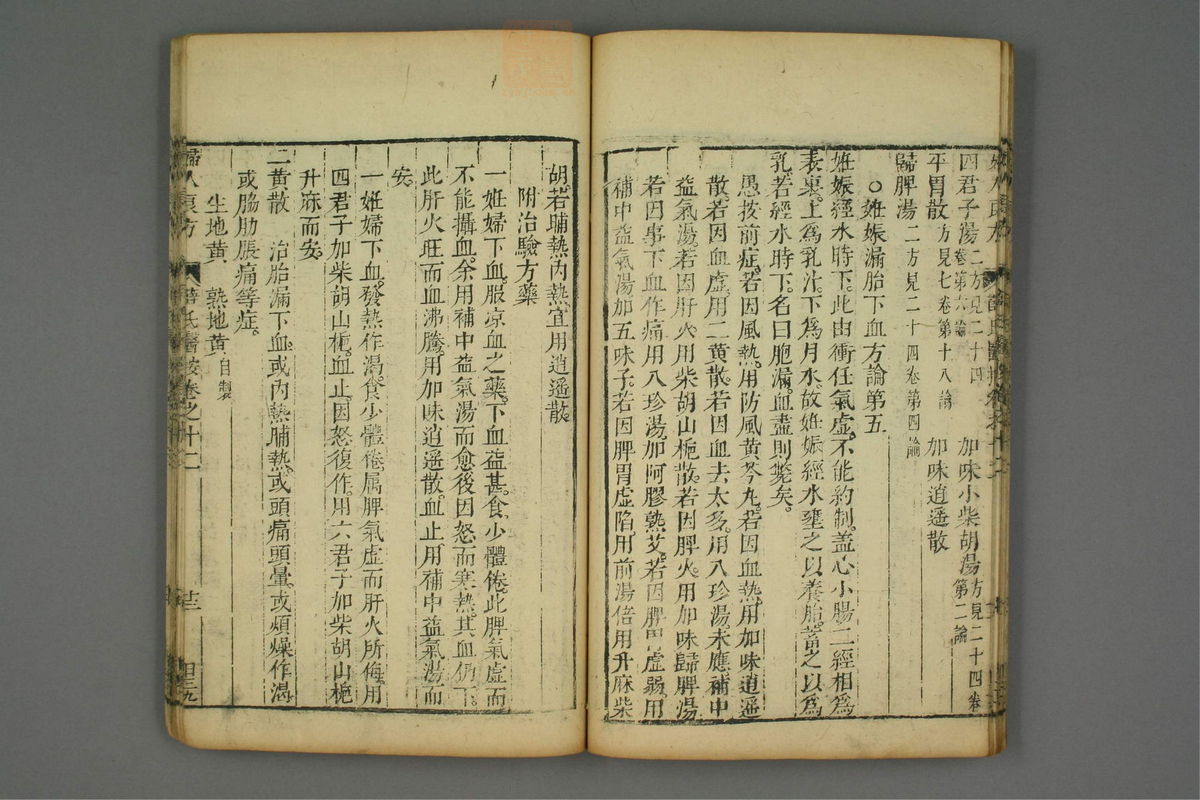 四君子湯二方見二十四卷第六論 加味小柴胡湯方見二十四卷第二論
平胃散方見七卷第十八論 加味逍遥散
歸脾湯二方見二十四卷第四論
○姙娠漏胎下血方論第五
姙娠經水時下。此由衝任氣虚。不能約制。盖心小腸二經相爲
表裏。上爲乳汁。下爲月水。故姙娠經水壅之以養胎。蓄之以爲
乳。若經水時下。名曰胞漏。血盡則斃矣。
愚按前症。若因風熱。用防風黄芩丸。若因血熱。用加味逍遥
散。若因血虚。用二黄散。若因血去太多。用八珍湯。未應補中
益氣湯。若因肝火。用柴胡山梔散。若因脾火。用加味歸脾湯
若因事下血作痛。用八珍湯。加阿膠熟艾。若因脾胃虚弱。用
補中益氣湯加五味子。若因脾胃虚陷。用前湯倍用升麻柴
胡。若晡熱内熱。宜用逍遥散。
附治驗方藥
一姙婦下血。服凉血之藥。下血益甚。食少體倦。此脾氣虚而
不能攝血。余用補中益氣湯而愈。後因怒而寒熱。其血仍下。
此肝火旺而血沸騰。用加味逍遥散。血止。用補中益氣湯而
安。
一姙婦下血。發熱作渴。食少體倦。属脾氣虚而肝火所侮。用
四君子加柴胡山梔。血止。因怒復作。用六君子加柴胡山梔
升麻而安。
二黄散 治胎漏下血。或内熱晡熱。或頭痛頭暈。或煩燥作渴
或脇肋脹痛等症。
生地黄 熟地黄自製
婦人良方 薛氏醫按卷之十二